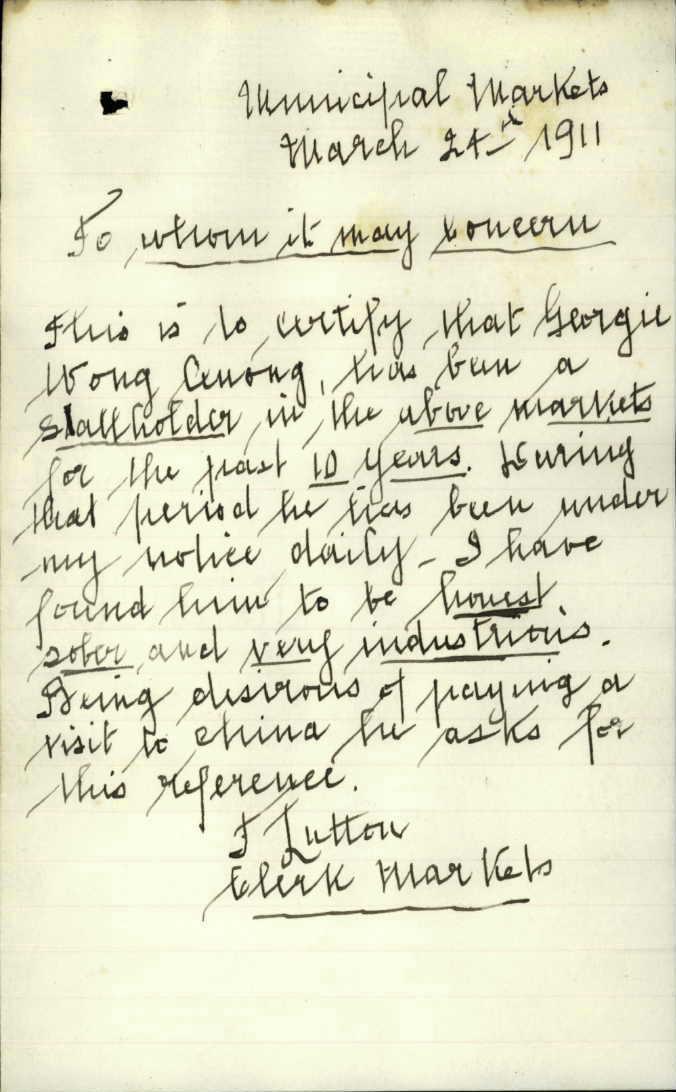 Municipal Markets
March 24th 1911
To whom it may Concern
This is to certify that Georgie
Wong , has been a
Stallholder in the above markets
for the past 10 years. During
that period he has been under
my notice daily - I have
found him to be honest
sober and very industrious.
Being desirous of paying a
visit to China he asks for
this reference.
F Lutton
Clerk Markets